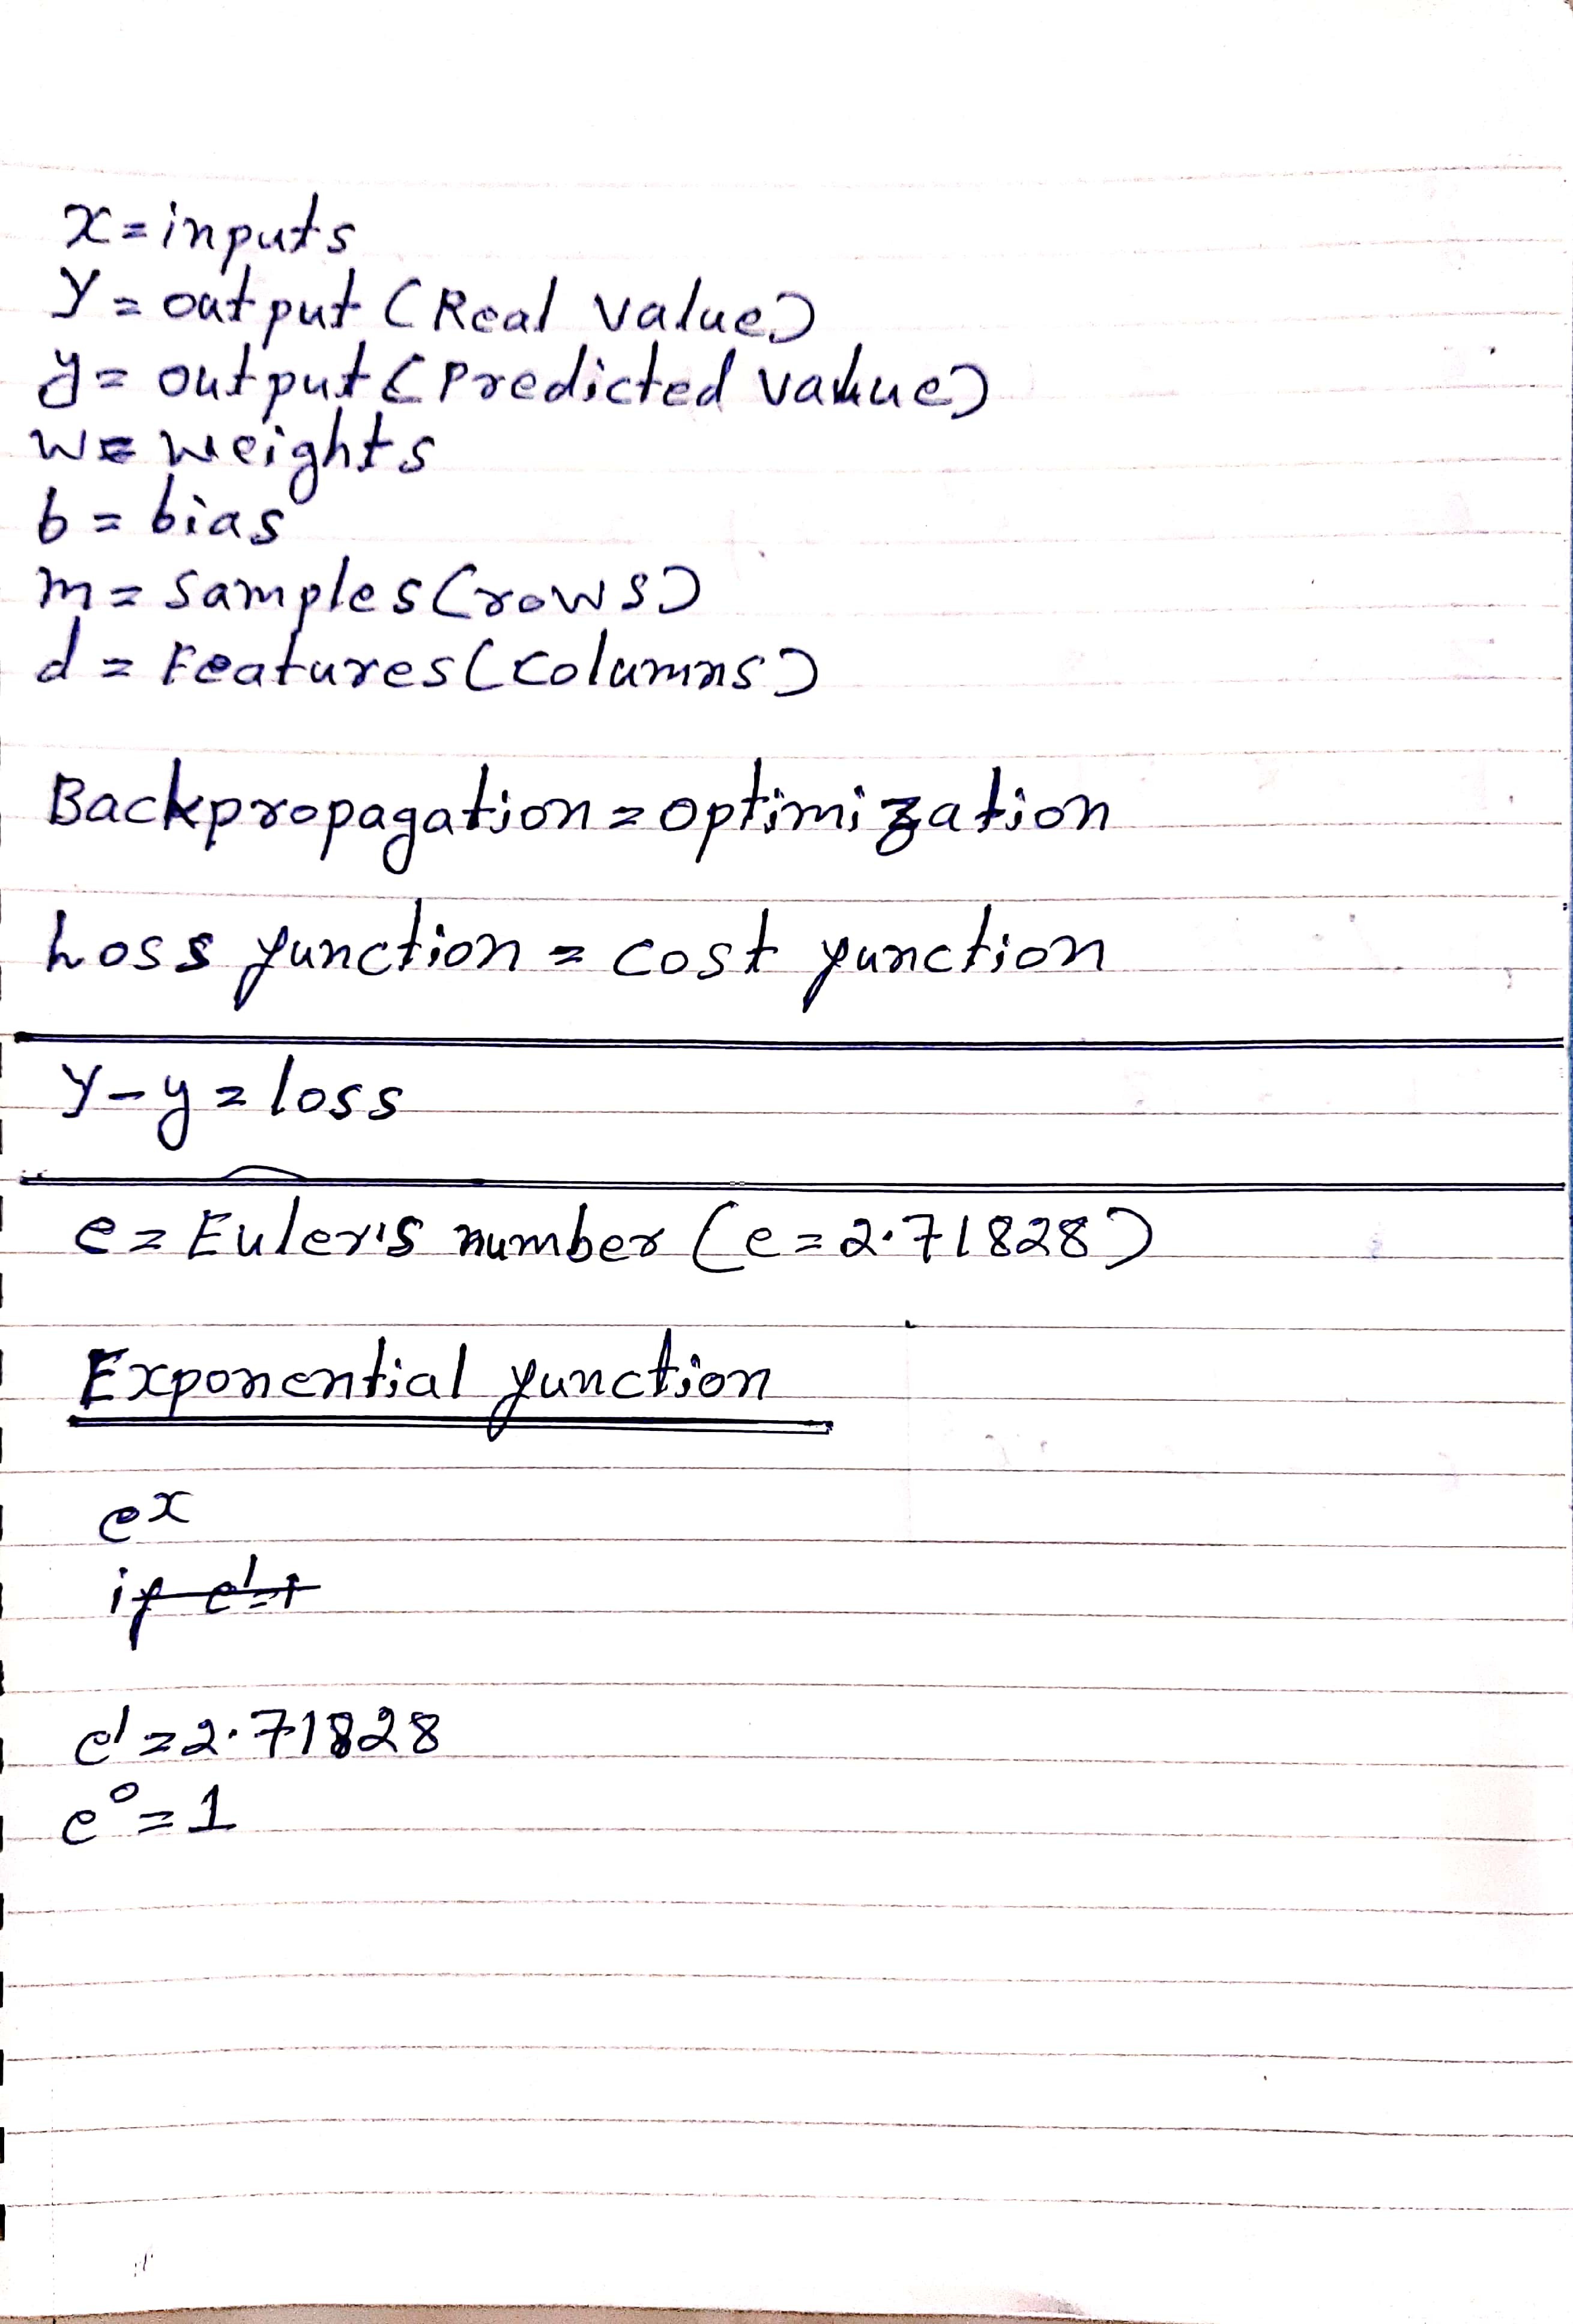 x = inputs
Y = output (Real value)
y = output (Predicted value)
w = weights
b = bias
m = samples (rows)
d = Features (columns)
Backpropagation = optimization
Loss function = cost function
Y - y = loss
e = Euler's number (e = 2.71828)
Exponential function
eˣ
if e¹=1
e¹ = 2.71828
e⁰ = 1